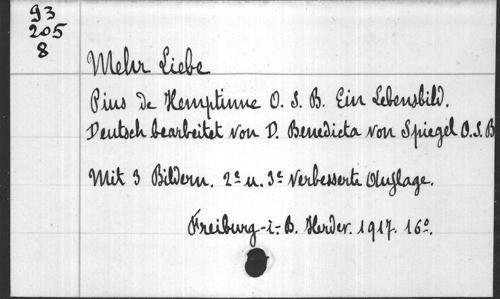 93
205
8
Mehr Liebe
Pius de Hemptinne O. S. B. Ein Lebensbild.
Deutsch bearbeitet von D. Benedicta von Spiegel O.S.B
Mit 3 Bildern. 2e u. 3e verbesserte Auflage.
Freiburg-i-B. Herder. 1917. 16o.